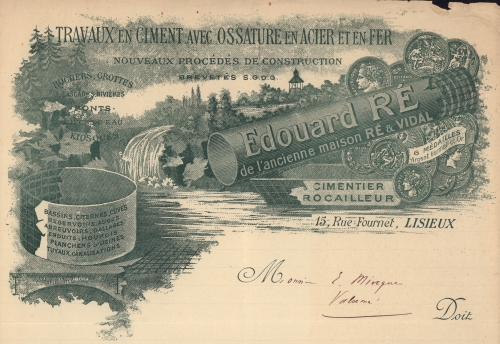 TRAVAUX EN CIMENT AVEC OSSATURE EN ACIER ET EN FER
NOUVEAUX PROCÉDÉS DE CONSTRUCTION
BREVETÉS S.G.D.G.
ROCHERS, GROTTES
CASCADES, RIVIÈRES
PONTS
EAU
KIOS
Edouard RÉ
de l'ancienne maison RÉ & VIDAL
6 MÉDAILLES
Argent
CIMENTIER
ROCAILLEUR
15, Rue Fournet, LISIEUX
BASSINS, CITERNES, CUVES
RÉSERVOIRS, AUGES
ABREUVOIRS, DALLAGES
ENDUITS, HOURDIS
PLANCHERS D'USINES
TUYAUX, CANALISATIONS
Monsieur E.
Doit